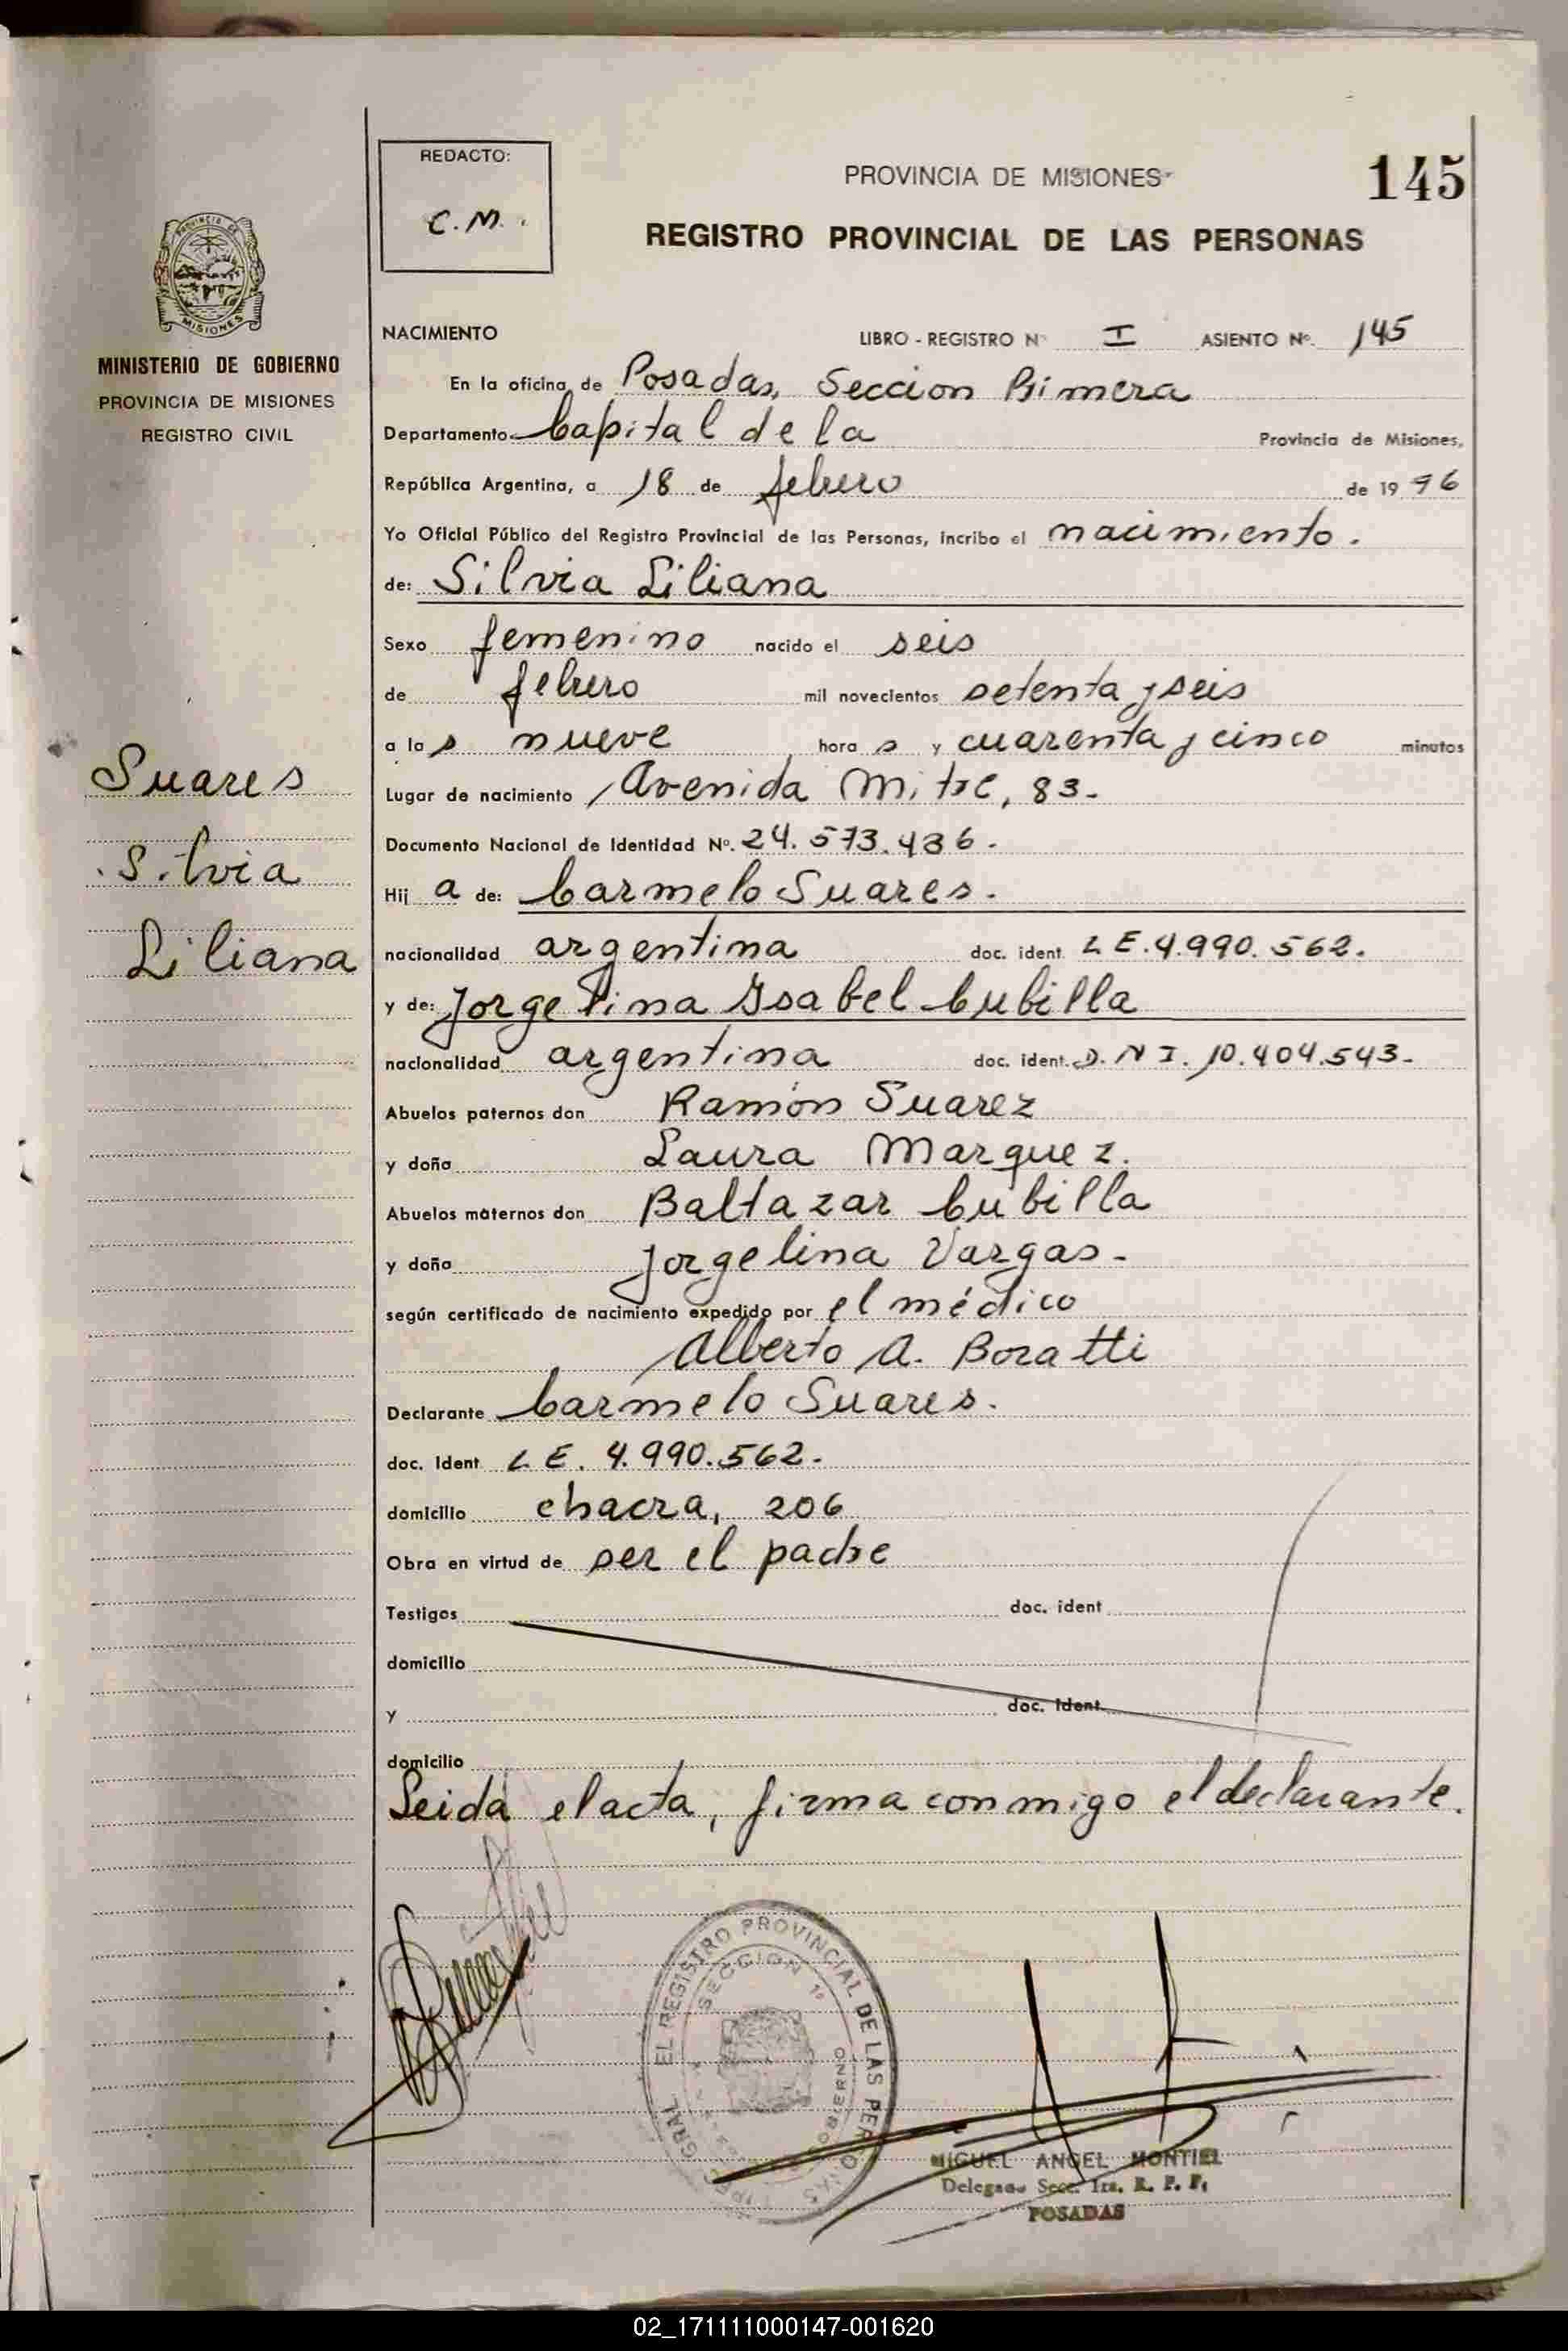 REDACTO:
C.M.
PROVINCIA DE MISIONES
145
REGISTRO PROVINCIAL DE LAS PERSONAS
PROVINCIA DE
MISIONES
MINISTERIO DE GOBIERNO
PROVINCIA DE MISIONES
REGISTRO CIVIL
Suares
Silvia
Liliana
NACIMIENTO LIBRO - REGISTRO Nº I ASIENTO Nº. 145
En la oficina de Posadas, Seccion Primera
Departamento Capital de la Provincia de Misiones,
República Argentina, a 18 de febrero de 1976
Yo Oficial Público del Registro Provincial de las Personas, incribo el nacimiento.
de: Silvia Liliana
Sexo femenino nacido el seis
de febrero mil novecientos setenta y seis
a las nueve horas y cuarenta y cinco minutos
Lugar de nacimiento Avenida Mitre, 83-
Documento Nacional de Identidad Nº. 24.573.436-
Hija de: Carmelo Suares.
nacionalidad argentina doc. ident. L E. 4.990.562.
y de: Jorgelina Ysabel Cubilla
nacionalidad argentina doc. ident. D. N I. 10.404.543-
Abuelos paternos don Ramón Suarez
y doña Laura Marquez.
Abuelos maternos don Baltazar Cubilla
y doña Jorgelina Vargas-
según certificado de nacimiento expedido por el médico
Alberto A. Boratti
Declarante Carmelo Suares.
doc. Ident L E. 4.990.562-
domicilio chacra, 206
Obra en virtud de ser el padre
Testigos doc. ident
domicilio
y doc. ident
domicilio
Leida el acta, firma conmigo el declarante.
EL REGISTRO PROVINCIAL DE LAS PERSONAS
SECCION 1º
MIGUEL ANGEL MONTIEL
Delegado Secc. 1ra. R. P. P.
POSADAS
02_171111000147-001620